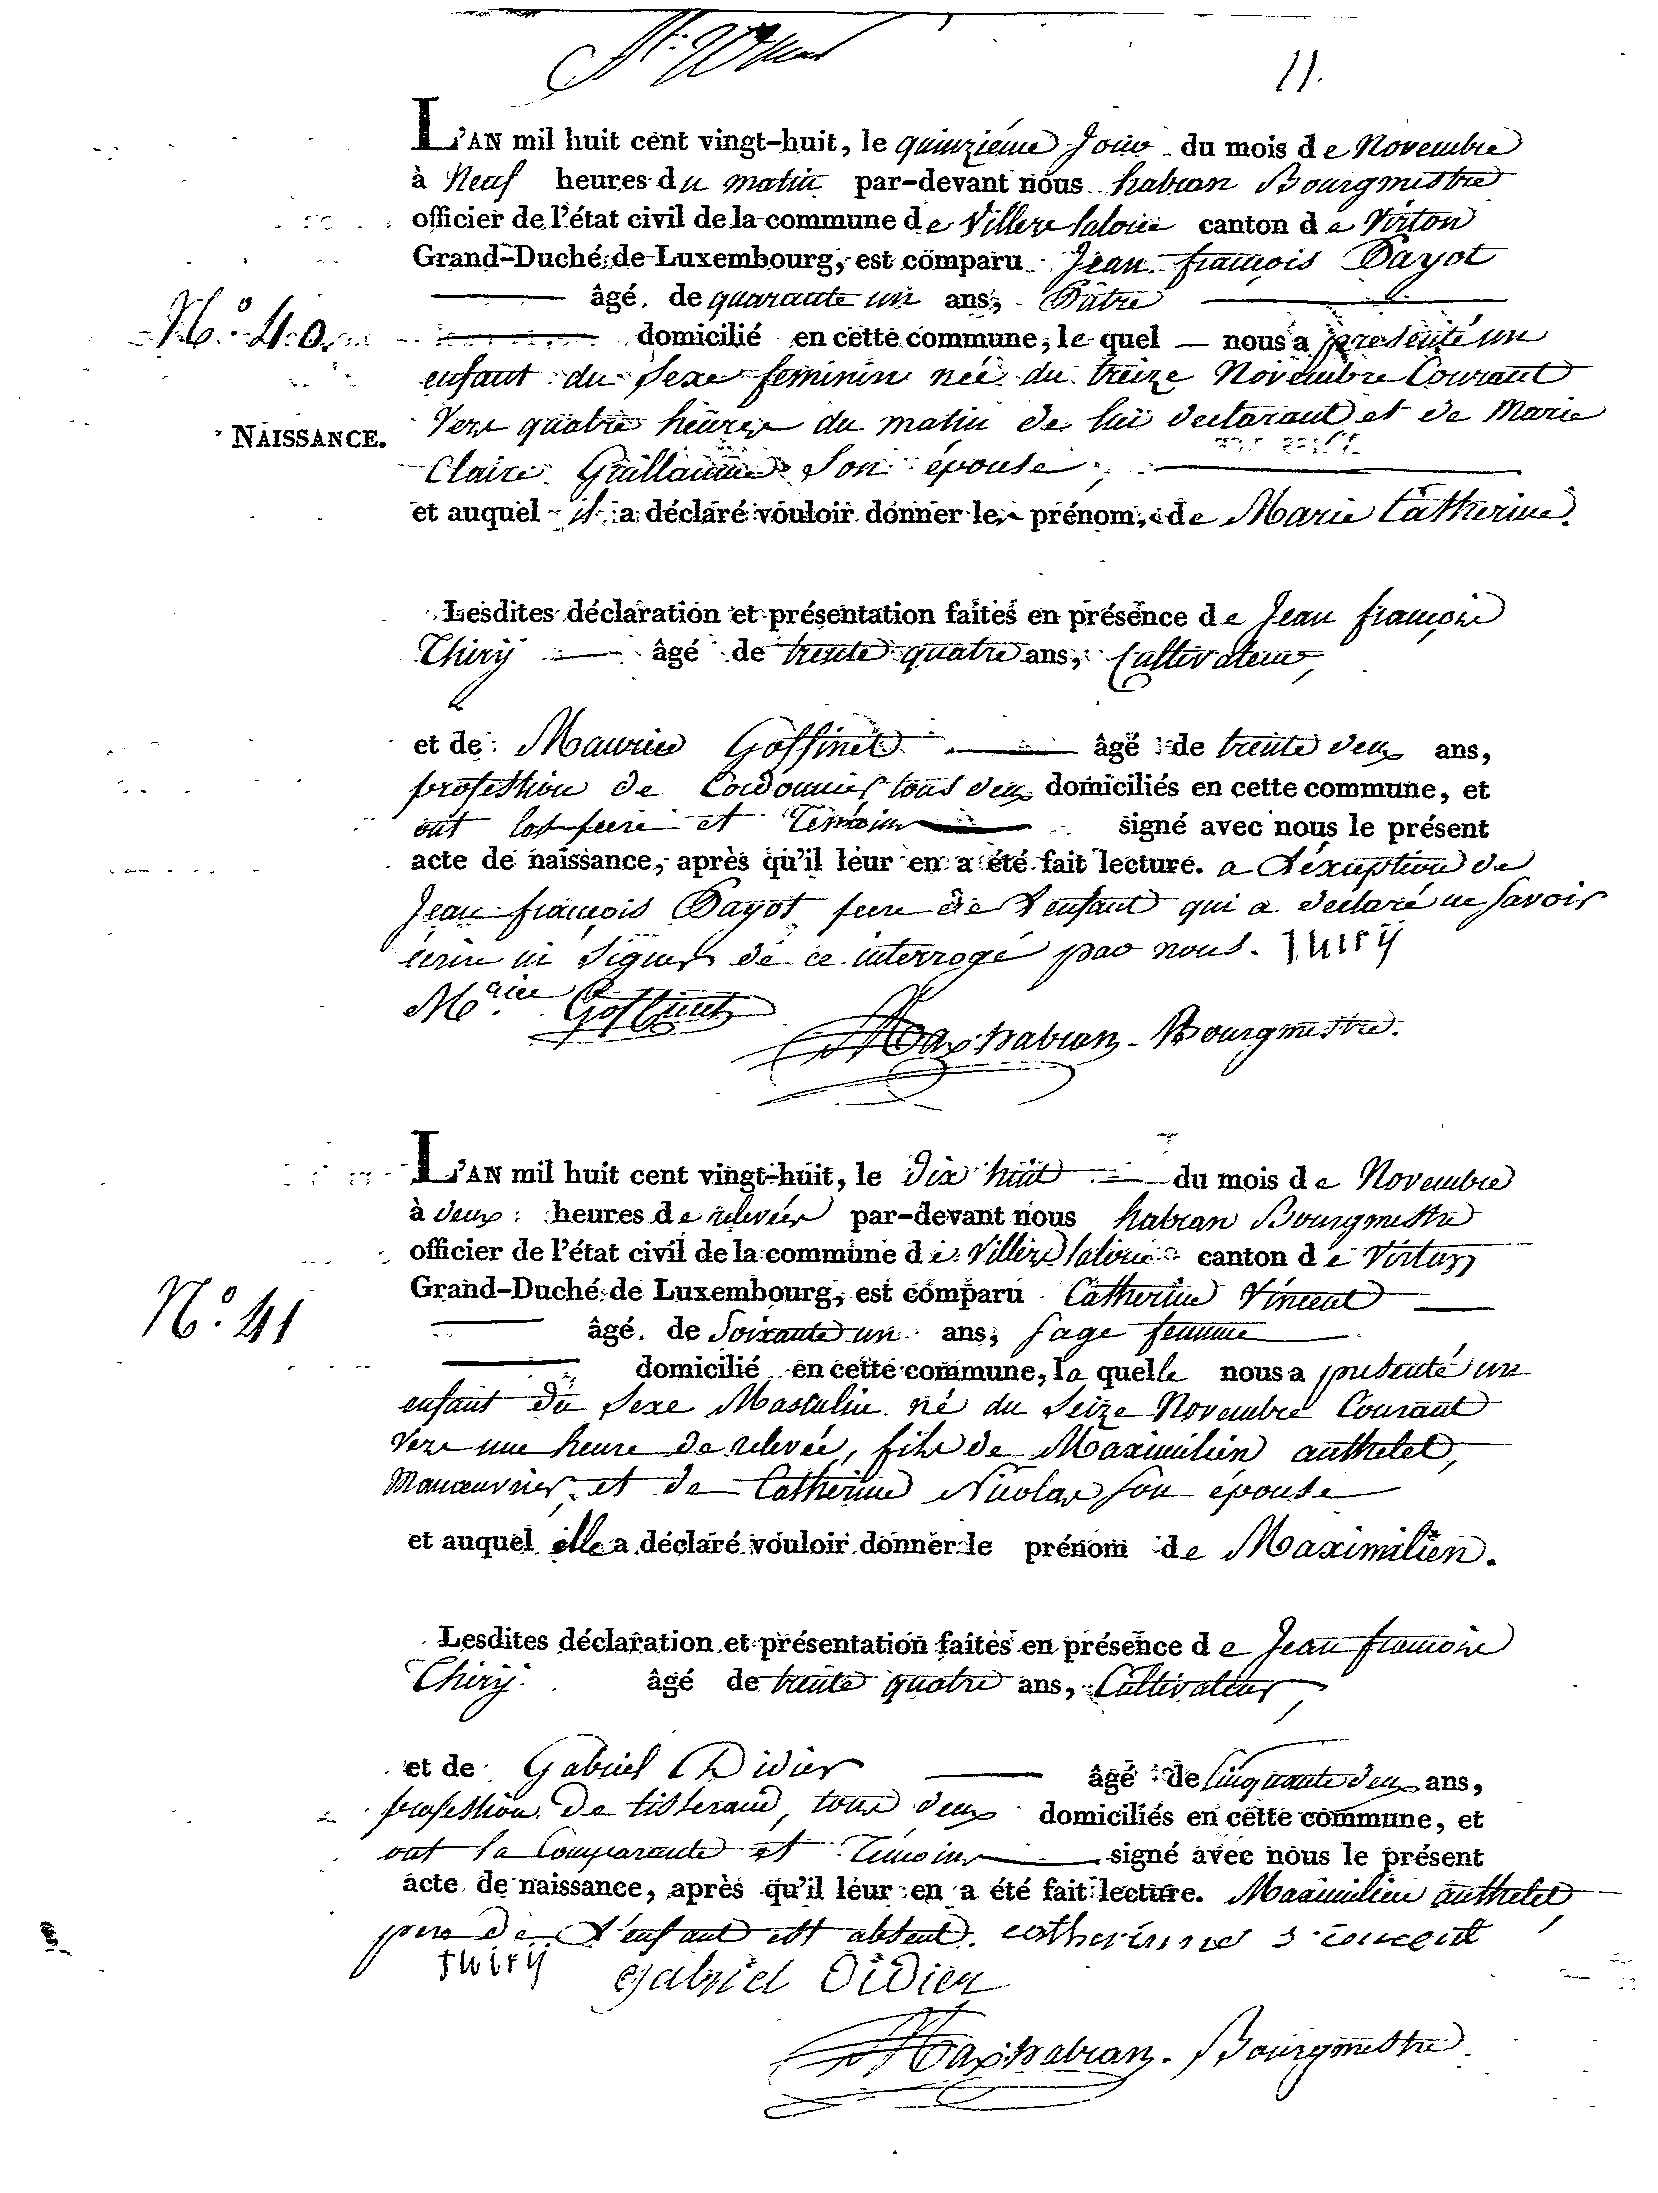 11.
L'AN mil huit cent vingt-huit, le quinziéme Jour du mois de Novembre
à Neuf heures du matin par-devant nous habran Bourgmestre
officier de l'état civil de la commune de Villers laloue canton de Virton
Grand-Duché de Luxembourg, est comparu Jean françois Payot
âgé de quarante un ans, Pâtre
N.° 40.
domicilié en cette commune, le quel nous a presenté un
enfant du Sexe feminin née du treize Novembre Courant
Vers quatre heures du matin de lui declarant et de Marie
NAISSANCE.
Claire Guillaume Son épouse,
et auquel il a déclaré vouloir donner le prénom de Marie Catherine.
Lesdites déclaration et présentation faites en présence de Jean françois
Thirÿ âgé de trente quatre ans, Cultivateur,
et de Maurice Goffinet âgé de trente deux ans,
profession de Cordonnier tous deux domiciliés en cette commune, et
ont les pere et Temoins signé avec nous le présent
acte de naissance, après qu'il leur en a été fait lecture. a L'exception de
Jean françois Payot pere de L'enfant qui a declaré ne Savoir
écrire ni Signer de ce interrogé par nous. Thirÿ
M.aice Goffinet
Max habran - Bourgmestre.
L'AN mil huit cent vingt-huit, le Dix huit du mois de Novembre
à deux heures de relevées par-devant nous habran Bourgmestre
officier de l'état civil de la commune de Villers laloue canton de Virton
Grand-Duché de Luxembourg, est comparu Catherine Vincent
N.° 41
âgé de Soixante un ans, sage femme
domicilié en cette commune, la quelle nous a presenté un
enfant du Sexe Masculin né du Seize Novembre Courant
Vers une heure de relevée, fils de Maximilien authelet,
Manœuvrier, et de Catherine Nicolas Son épouse
et auquel elle a déclaré vouloir donner le prénom de Maximilien.
Lesdites déclaration et présentation faites en présence de Jean françois
Thirÿ. âgé de trente quatre ans, Cultivateur,
et de Gabriel Didier âgé de Cinquante deux ans,
profession De tisserand, tous deux domiciliés en cette commune, et
ont la Comparante et Temoins signé avec nous le présent
acte de naissance, après qu'il leur en a été fait lecture. Maximilien authelet
pere De L'enfant est absent. catherinne
Thirÿ Gabriel Didier
Max habran. Bourgmestre